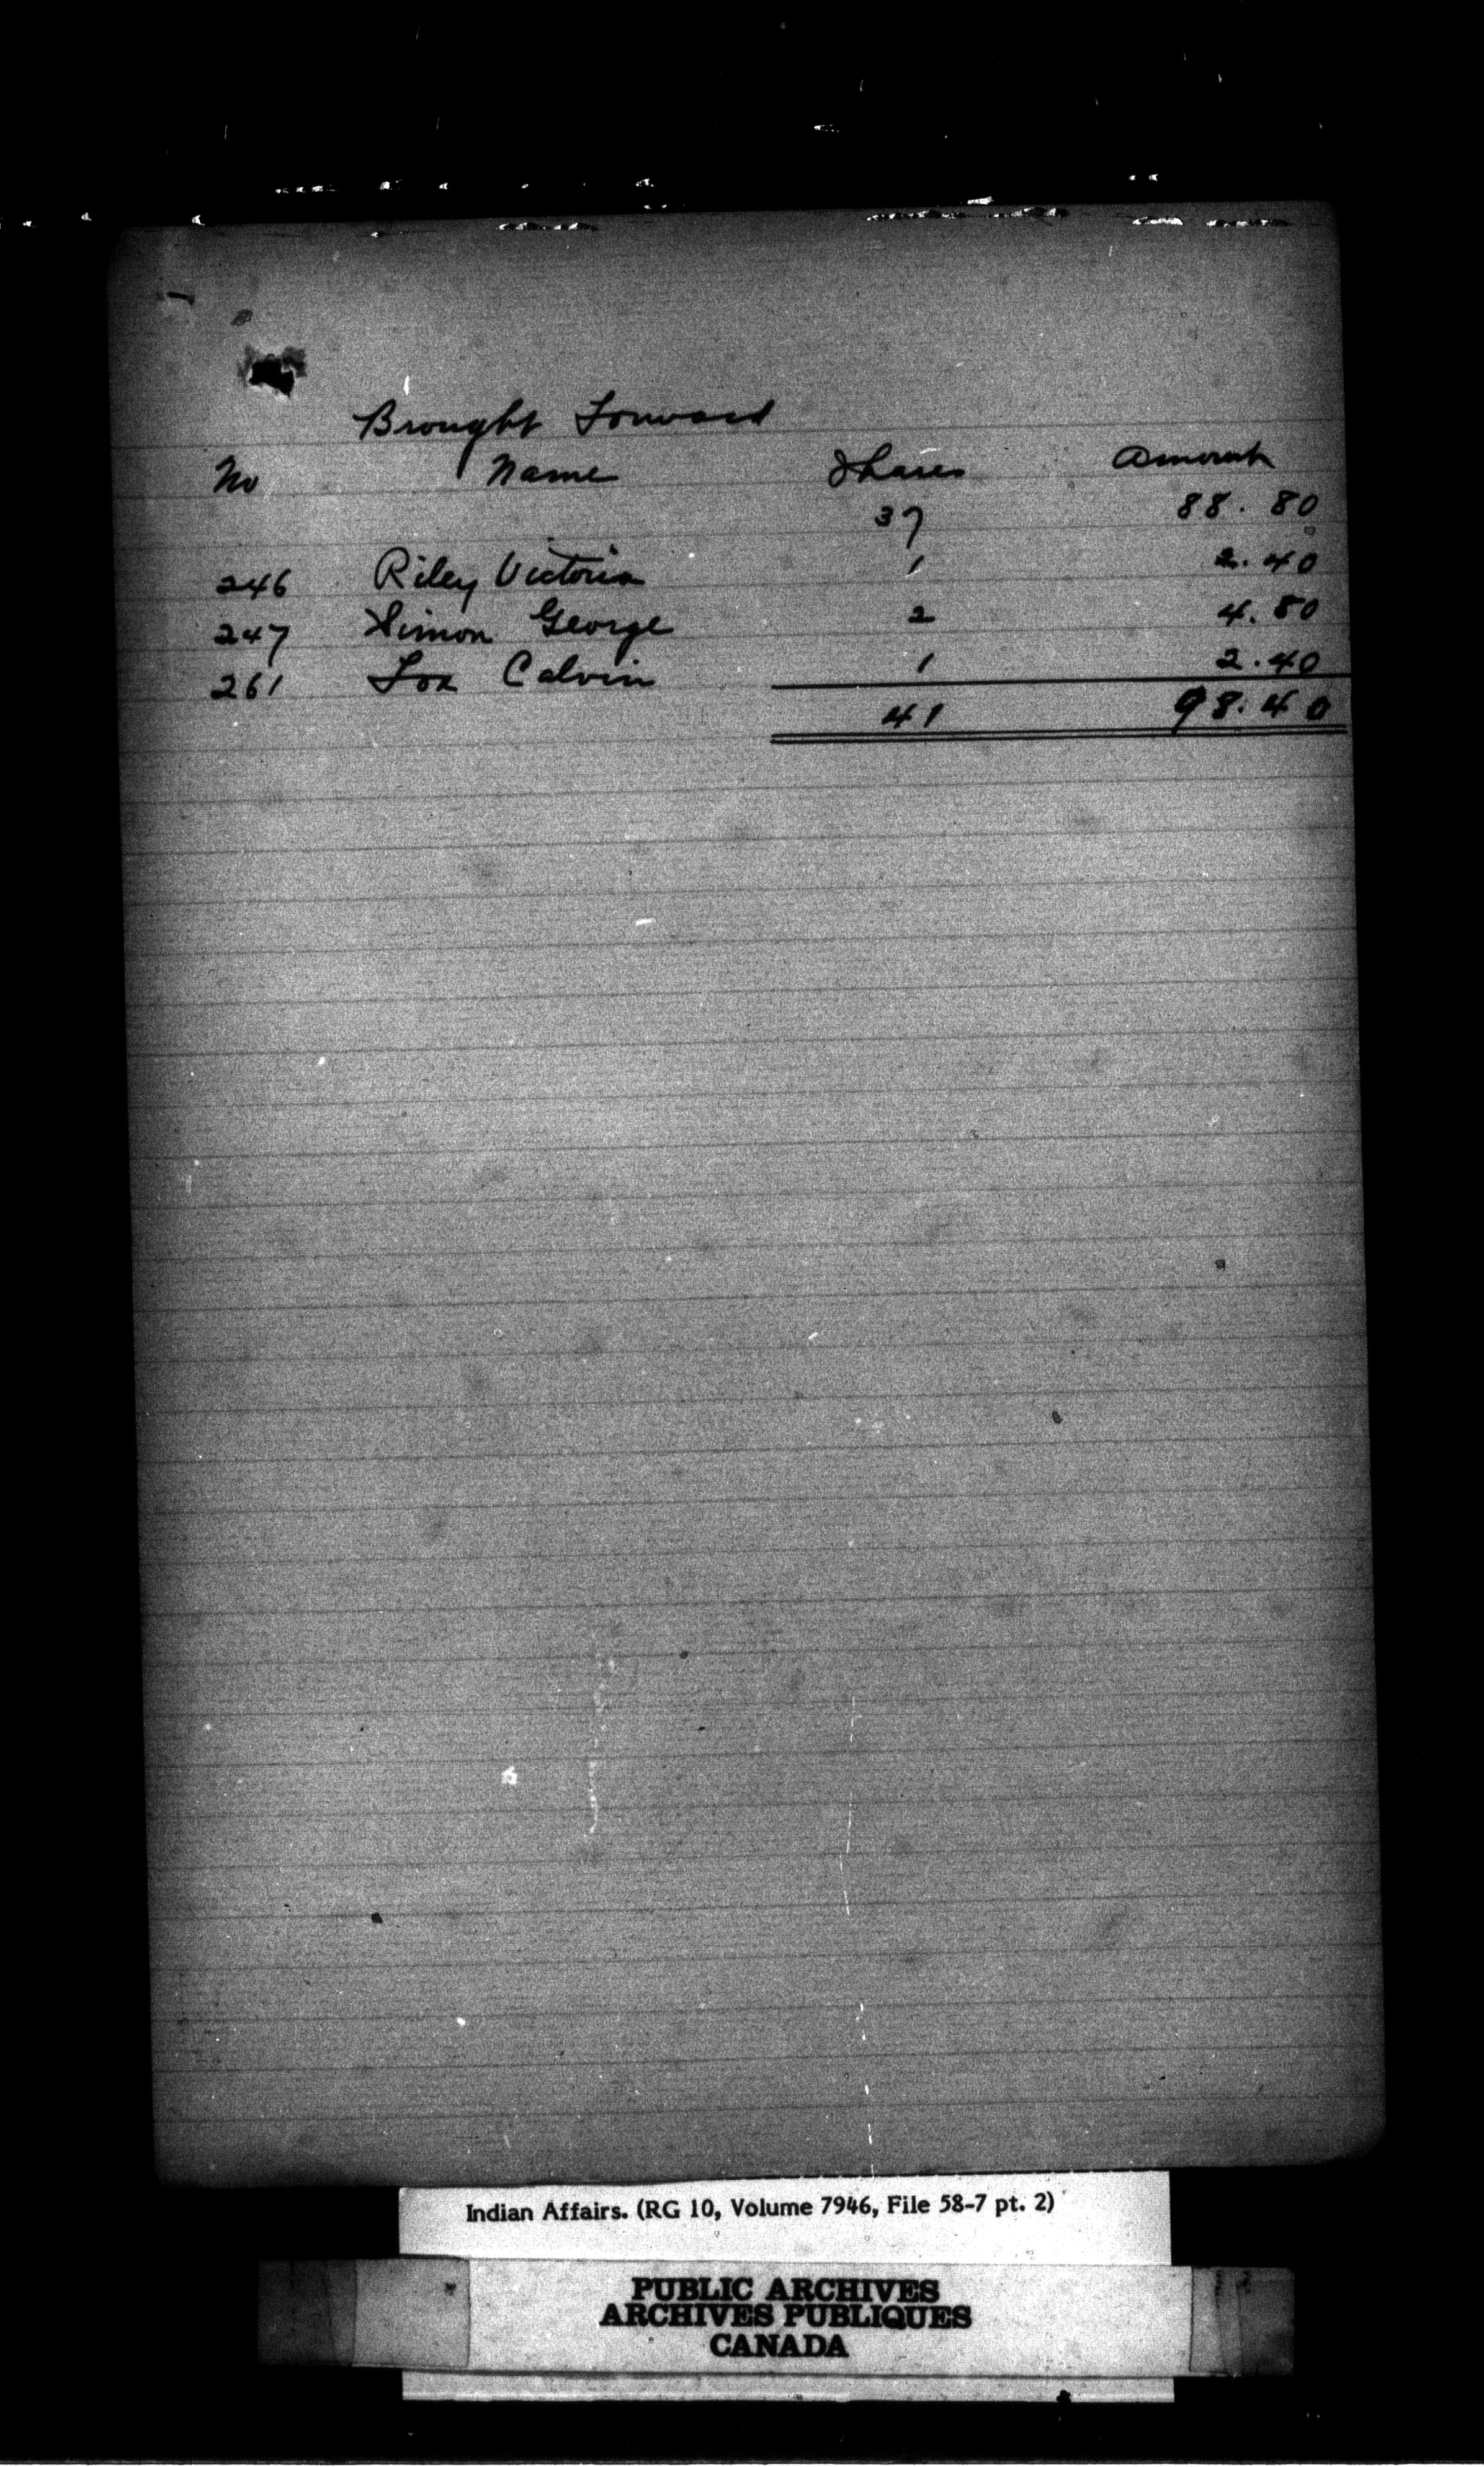 Brought Forward
No Name Shares Amount
37 88.80
246 Riley Victoria 1 2.40
247 Simon George 2 4.80
261 Fox Calvin 1 2.40
41 98.40
Indian Affairs. (RG 10, Volume 7946, File 58-7 pt. 2)
PUBLIC ARCHIVES
ARCHIVES PUBLIQUES
CANADA